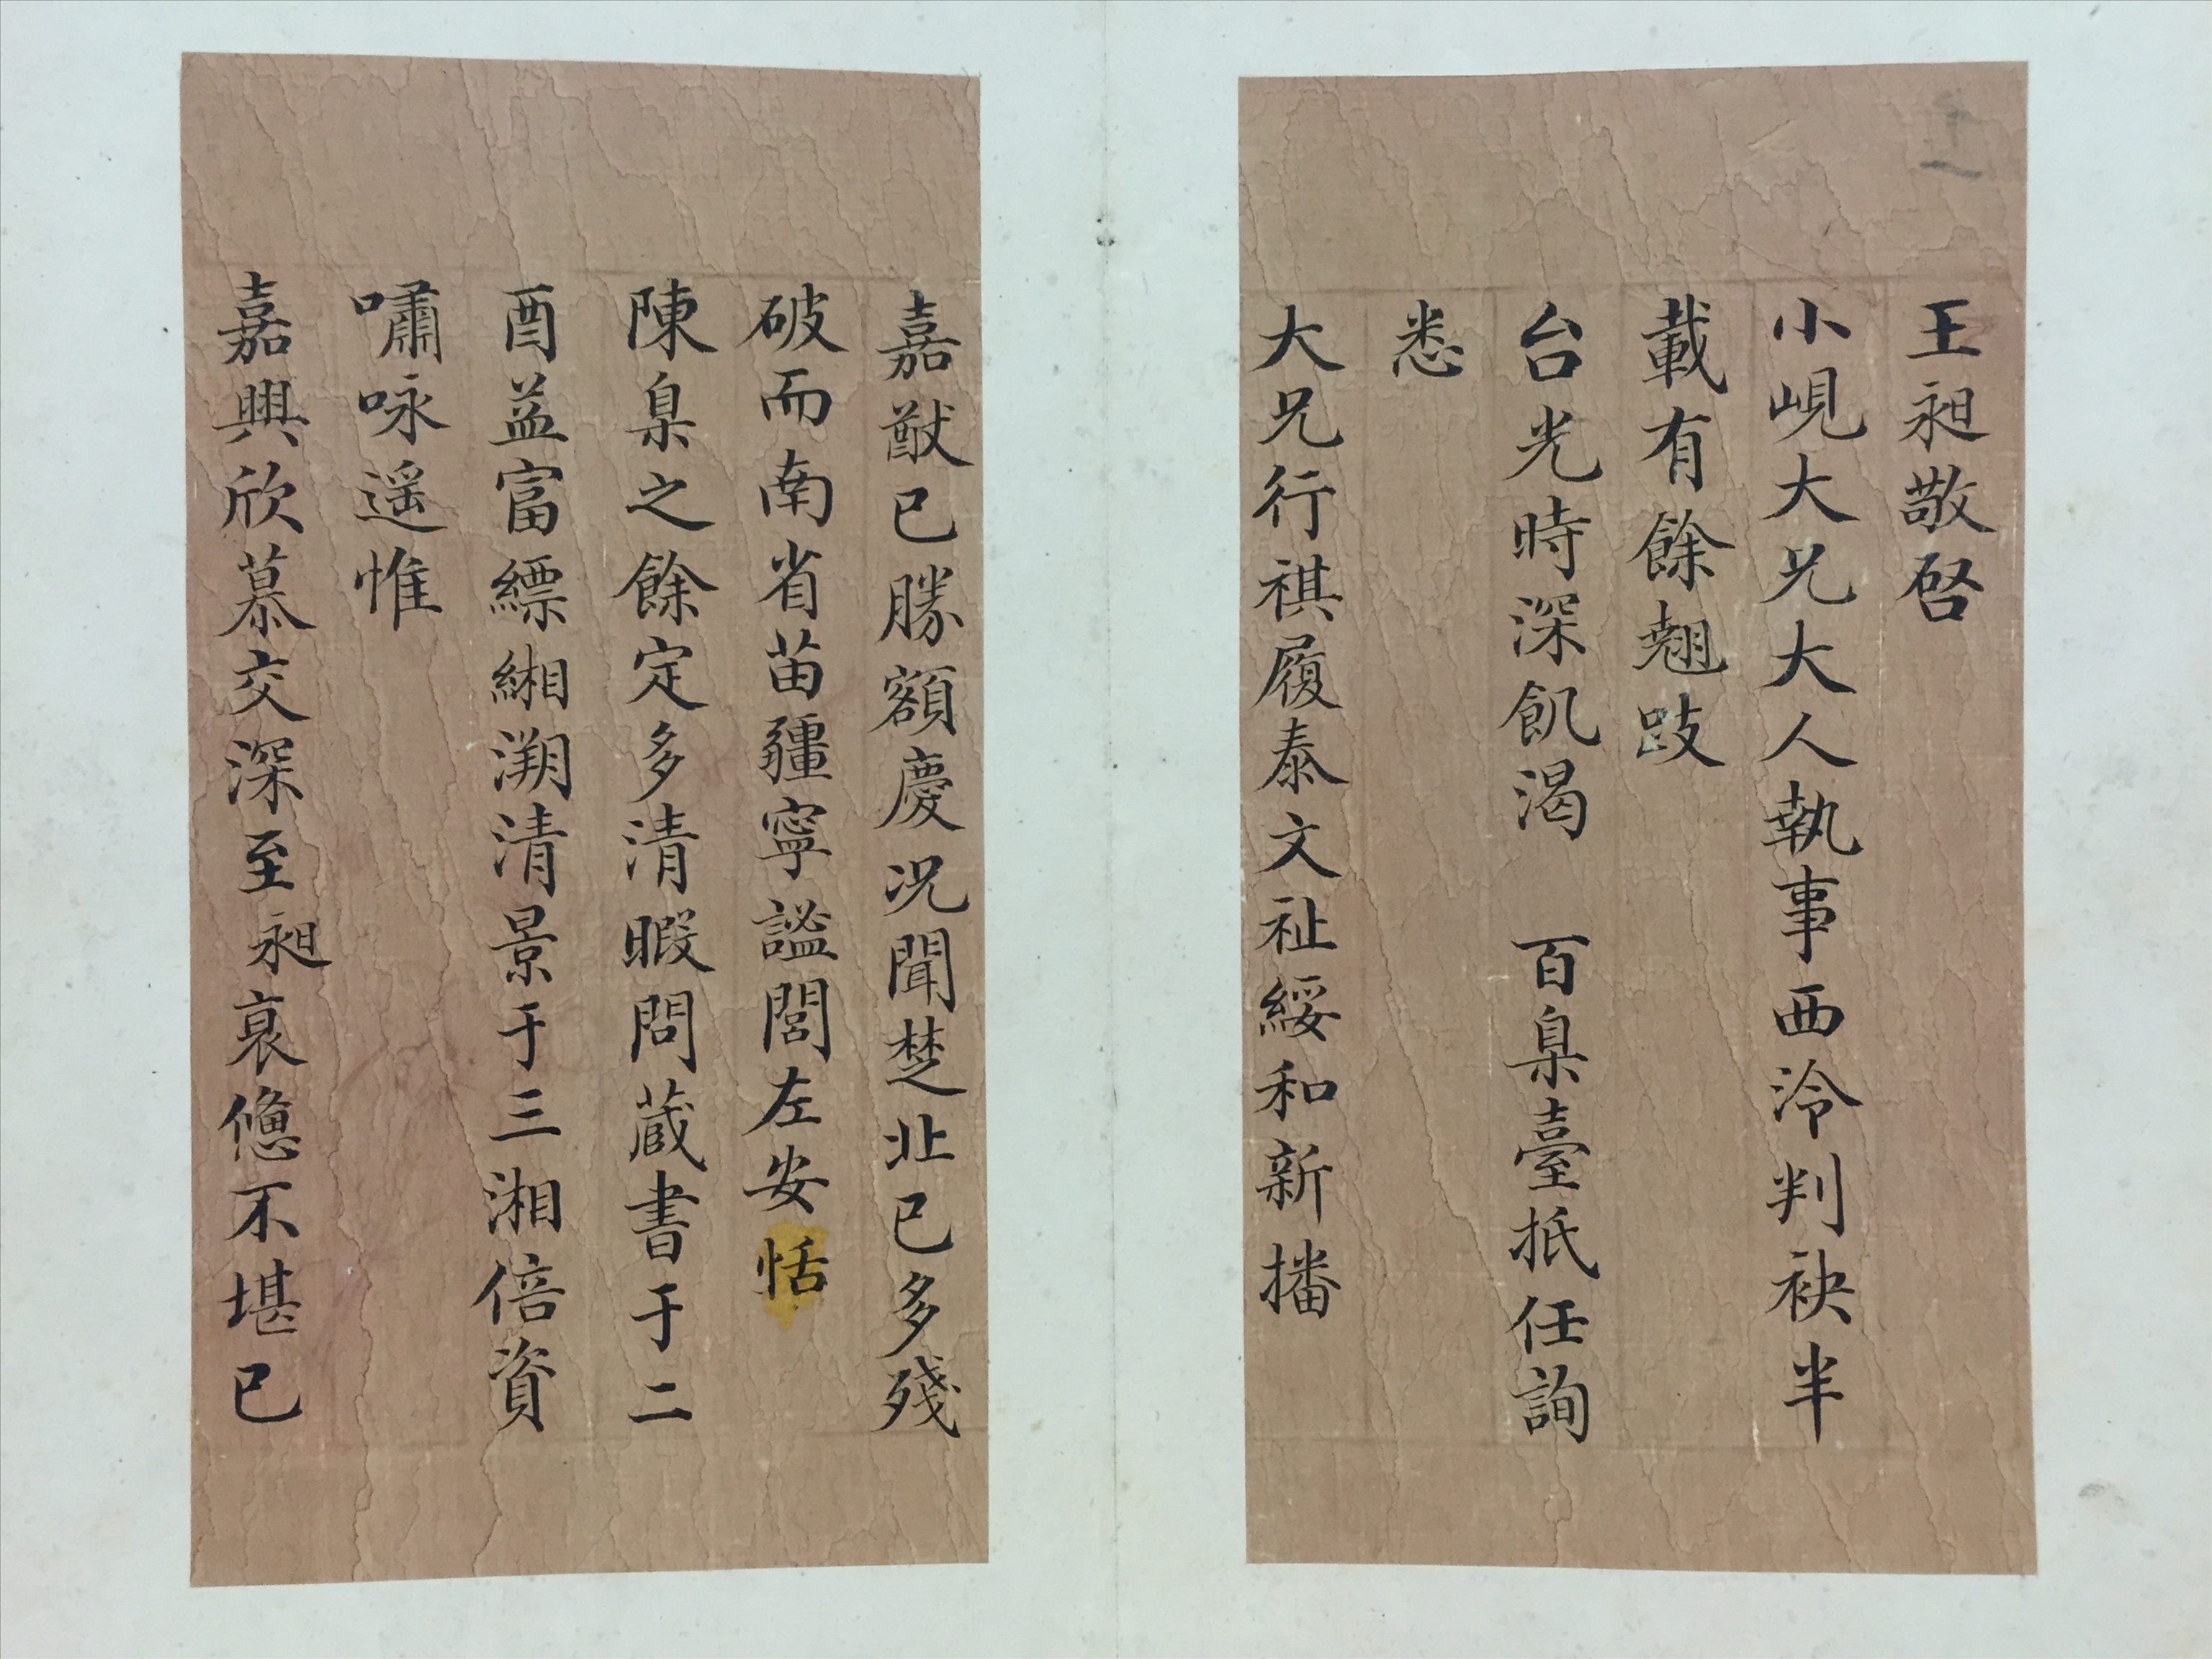 王昶敬啓
小峴大兄大人執事西泠判袂半
載有餘翹跂
台光時深飢渴　百臬臺抵任詢
悉
大兄行祺履泰文祉綏和新播
嘉猷已勝額慶况聞楚北已多殘
破而南省苗疆寧謐閭左安恬
陳臬之餘定多清暇問蔵書于二
酉益富縹緗溯清景于三湘倍資
嘯咏遥惟
嘉興欣慕交深至昶衰憊不堪已